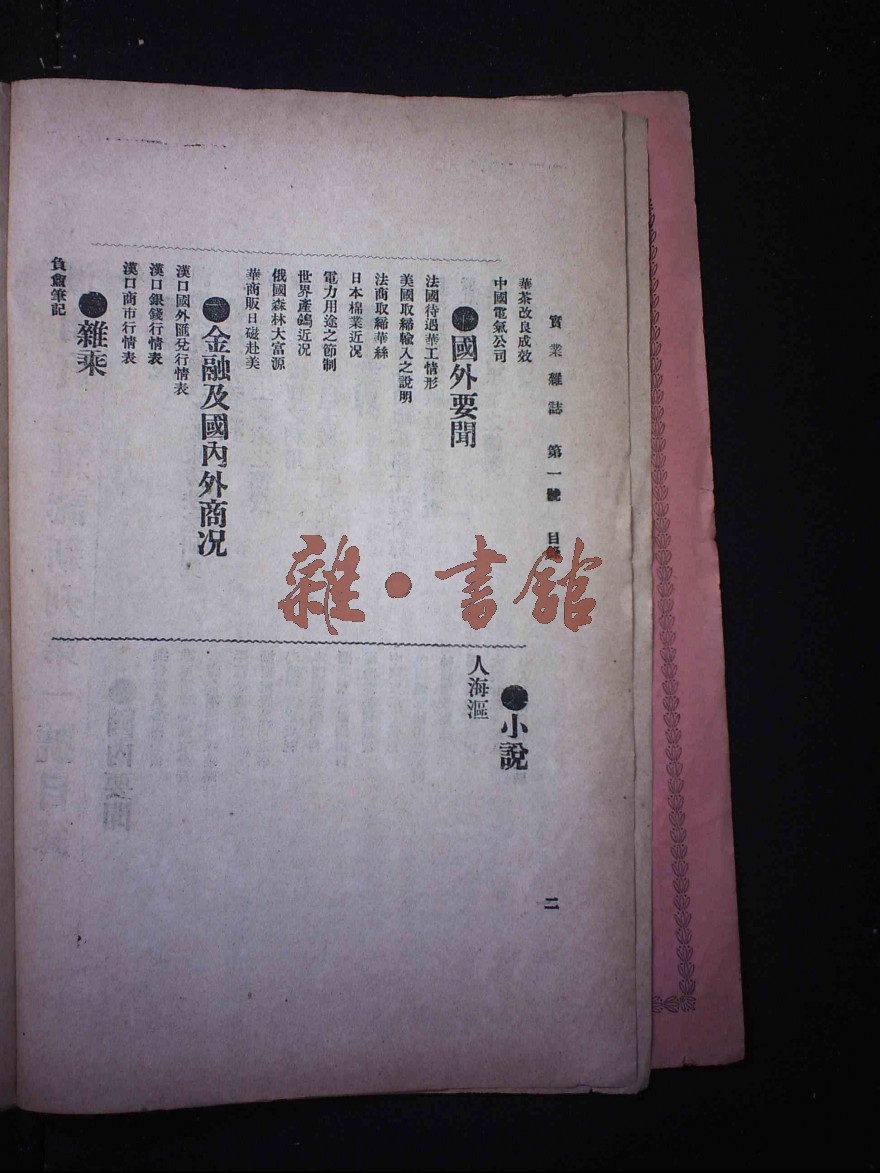 實業雜誌 第一號 目錄 二
華茶改良成效
中國電氣公司
國外要聞
法國待遇華工情形
美國取締輸入之說明
法商取締華絲
日本棉業近况
電力用途之節制
世界產鴿近况
俄國森林大富源
華商販日磁赴美
金融及國內外商况
漢口國外匯兌行情表
漢口銀錢行情表
漢口商市行情表
雜乘
負龕筆記
小說
人海漚
雜·書館